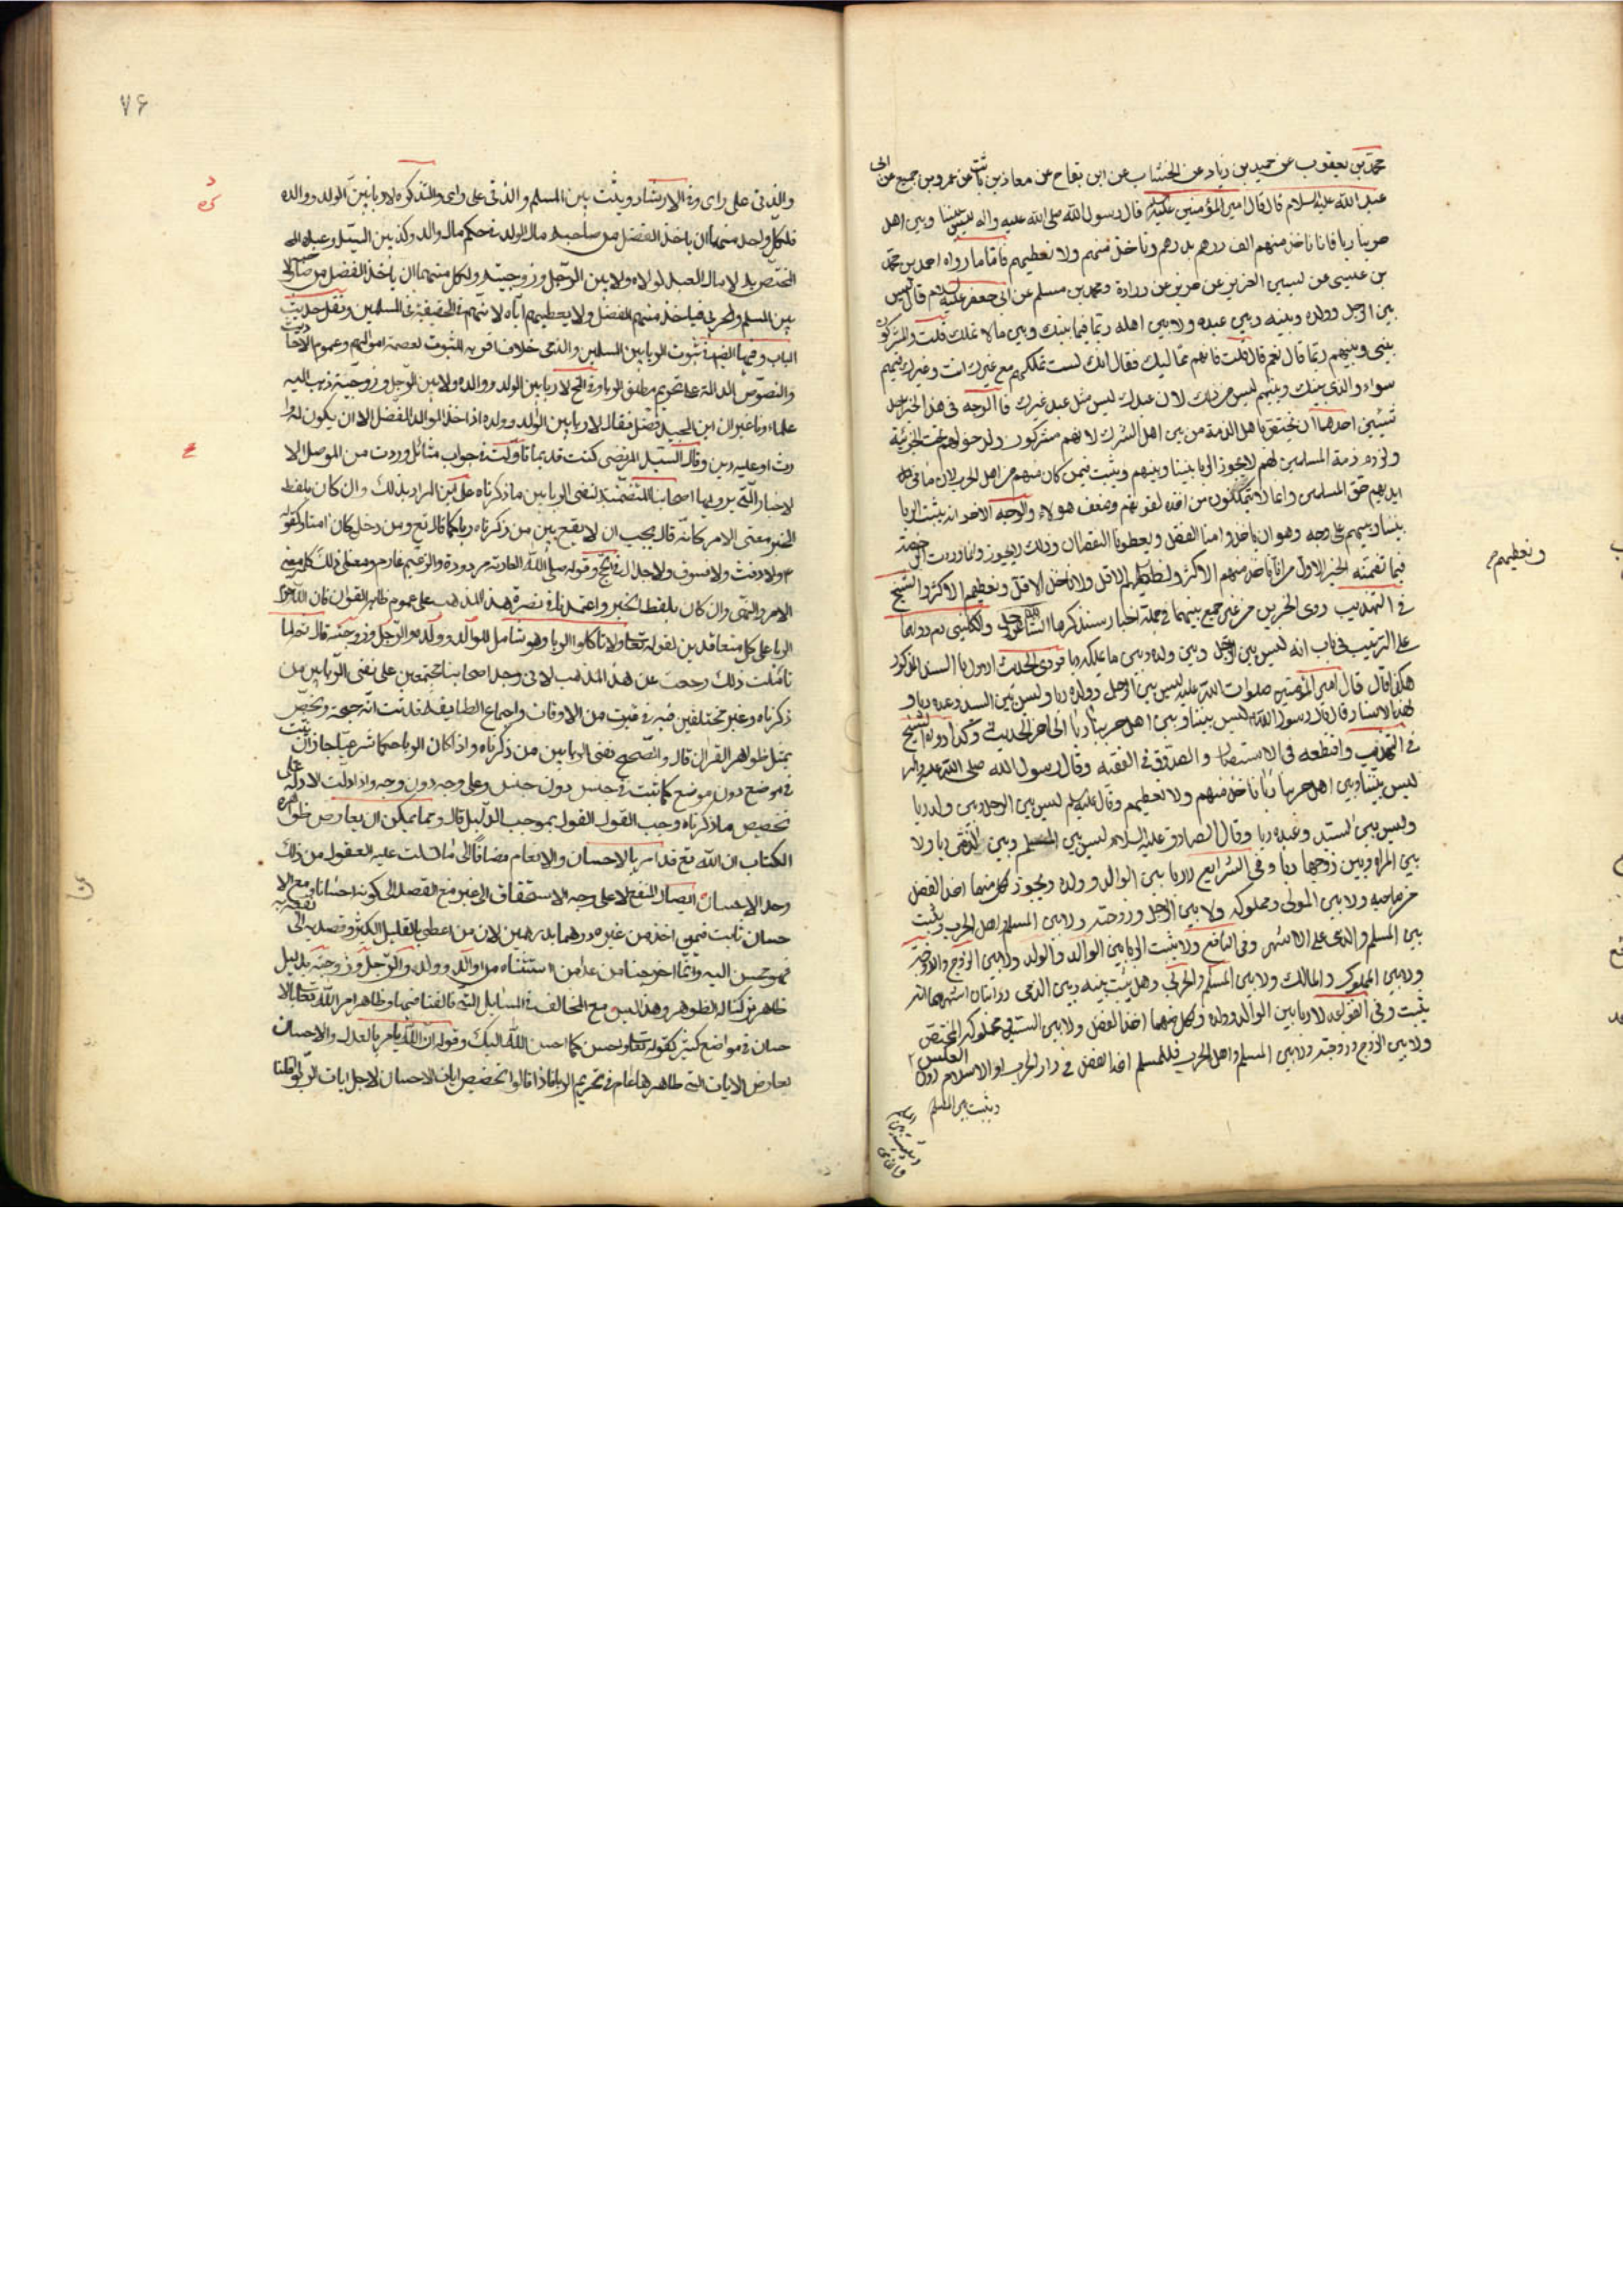 محمد بن يعقوب عن حميد بن زياد عن الخشاب عن ابن بقاح عن معاذ بن ثابت عن عمرو بن جميع عن ابى
عبد الله عليه السلام قال قال امير المؤمنين عليه السلم قال رسول الله صلى الله عليه واله ليس بيننا وبين اهل
حربنا ربا فانا ناخذ منهم الف درهم بدرهم وناخذ منهم ولا نعطيهم فاما ما رواه احمد بن محمد
بن عيسى عن يسين الضرير عن حريز عن زرارة ومحمد بن مسلم عن ابى جعفر عليه السلام قال ليس
بين الرجل وولده وبينه وبين عبده ولا بين اهله ربا انما فيما بينك وبين ما لا تملك قلت والمشركون
بينى وبينهم ربا قال نعم قال قلت فانهم مماليك فقال انك لست تملكهم مع غيرك انت وغيرك فيهم
سواء والذى بينك وبينهم ليس من ذلك لان عبدك ليس مثل عبد غيرك فالوجه فى هذا الخبر احد
شيئين احدهما ان يختص باهل الذمة من بين اهل الشرك لانهم مشركون ولدخولهم تحت الجزية
ولزوم ذمة المسلمين لهم لا يجوز الربا بيننا وبينهم ويثبت فيمن كان منهم من اهل الحرب لان ما فى
ايديهم حق المسلمين وانما لا يتمكنون من اخذه لقوتهم وضعف هولاء والوجه الاخر انه يثبت الربا
بيننا وبينهم على وجه وهو ان ياخذوا منا الفضل ويعطونا النقصان وذلك لا يجوز وانما وردت الرخصة
فيما تضمنه الخبر الاول من انا ناخذ منهم الاكثر ونعطيهم الاقل ولا ناخذ الاقل ونعطيهم الاكثر والشيخ
فى التهذيب روى الخبرين من غير جمع بينهما فى جملة اخبار سنذكرها
على الترتيب فى باب انه ليس بين الرجل وبين ولده وبين ما يملكه ربا فروى الحديث
هكذا قال قال امير المؤمنين صلوات الله عليه ليس بين الرجل وولده ربا وليس بين السيد وعبده ربا و
بهذا الاسناد قال قال رسول الله ليس بيننا وبين اهل حربنا ربا الى اخر الحديث وكذا رواه الشيخ
فى التهذيب واقتطعه فى الاستبصار والصدوق فى الفقيه وقال رسول الله صلى الله عليه واله
ليس بيننا وبين اهل حربنا ربا ناخذ منهم ولا نعطيهم وقال عليه السلم ليس بين الرجل وبين ولده ربا
وليس بين السيد وعبده ربا وقال الصادق عليه السلام ليس بين المسلم وبين الذمى ربا ولا
بين المراة وبين زوجها ربا وفى الشرايع لا ربا بين الوالد وولده ويجوز لكل منهما اخذ الفضل
من صاحبه ولا بين المولى ومملوكه ولا بين الرجل وزوجته ولا بين المسلم واهل الحرب ويثبت
بين المسلم والذمى على الاشهر وفى النافع ولا يثبت الربا بين الوالد والولد ولا بين الزوج والزوجة
ولا بين المملوك والمالك ولا بين المسلم والحربى وهل يثبت بينه وبين الذمى روايتان اشهرهما انه
يثبت وفى القواعد لا ربا بين الوالد وولده ولكل منهما اخذ الفضل ولا بين السيد ومملوكه المختص
ولا بين الزوج وزوجته ولا بين المسلم واهل الحرب فللمسلم اخذ الفضل فى دار الحرب او الاسلام دون العكس
ويثبت بين المسلم
ونعطيهم
٧۶
والذمى على راى وفى الارشاد ويثبت بين المسلم والذمى على راى والتذكره لا ربا بين الولد ووالده
فلكل واحد منهما ان ياخذ الفضل من صاحبه مال الولد فى حكم مال والد وكذ بين السيد وعبده
المختص به لا مال العبد لمولاه ولا بين الرجل وزوجته ولكل منهما ان ياخذ الفضل من صاحبه ولا
بين المسلم والحربى فياخذ منهم الفضل ولا يعطيهم اياه لانهم فى الحقيقة فئ المسلمين ونقل حديث
الباب وفيها ثبوت الربا بين المسلمين والذمى خلاف اقربه الثبوت لعصمة اموالهم وعموم الايات
والنصوص الدالة على تحريم مطلق الربا لا ربا بين الولد ووالده ولا بين الرجل وزوجته ذهب اليه
علماءونا غير ان ابن الجنيد فصل فقال لا ربا بين الوالد وولده اذا اخذ الوالد الفضل الا ان يكون له
وارث او عليه دين وقال السيد المرتضى كنت قديما تاولت فى جواب مسائل وردت من الموصل الا
لاخبار التى يرويها اصحابنا المتضمنة لنفى الربا بين ما ذكرناه على ان المراد بذلك وان كان بلفظ
الخبر معنى الامر كانه قال يجب ان لا يقع بين من ذكرناه ربا كما قال تع ومن دخله كان امنا وكقوله
فلا رفث ولا فسوق ولا جدال فى الحج وقوله صلى الله العارية مردودة والزعيم غارم ومعنى ذلك كله معنى
الامر والنهى وان كان بلفظ الخبر واعتمدنا فى نصرة هذا المذهب على عموم ظاهر القران فان الله حرم
الربا على كل متعاقدين لقوله تعا ولا تاكلوا الربا وهو شامل للوالد وولده والرجل وزوجته قال ثم لما
تاملت ذلك رجعت عن هذا المذهب لانى وجدت اصحابنا مجتمعين على نفى الربا بين من
ذكرناه وغير مختلفين فيه فى وقت من الاوقات واجماع الطايفة قد ثبت انه حجة ويخص
بمثله ظواهر القران قال والصحيح نفى الربا بين من ذكرناه واذا كان الربا حكما شرعيا جاز ان يثبت
فى موضع دون موضع كما ثبت فى جنس دون جنس وعلى وجه دون وجه واذا دلت الادلة على
تخصيص ما ذكرناه وجب القول القول بموجب الدليل قال ومما يمكن ان يعارض ظواهره
الكتاب ان الله تع قد امر بالاحسان والانعام مضافا الى ما دلت عليه العقول من ذلك
وحد الاحسان ايصال النفع لا على وجه الاستحقاق الى الغير مع القصد الى كونه احسانا ومع الا
حسان ثابت فيمن اخذ من غيره درهما بدرهمين لان من اعطى بالقليل الكثير وقصد به الى نفعه
فهو محسن اليه وانما اخرجنا من عدا من استثناه من الوالد وولده والرجل وزوجته بدليل
ظاهر تركنا له الظواهر وهذا ليس مع المخالف فى المسايل التى خالفنا فيها وظاهر امر الله تعا بالا
حسان فى مواضع كثيرة كقوله تعا واحسن كما احسن الله اليك وقوله ان الله يامر بالعدل والاحسان
يعارض الايات التى ظاهرها عام فى تحريم الربا فاذا قالوا نخصص ايات الاحسان لاجل ايات الربوا قلنا